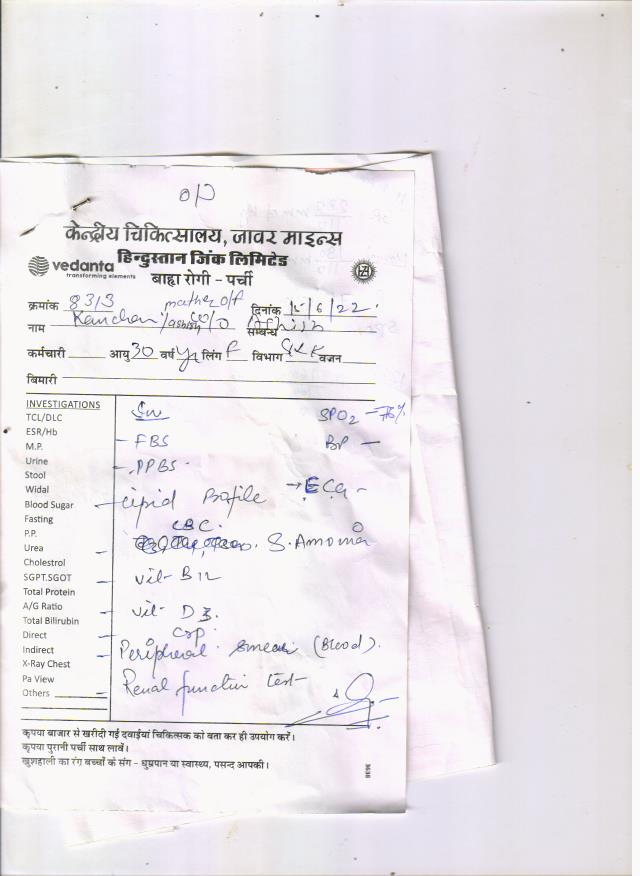 O/D
केन्द्रीय चिकित्सालय, जावर माइन्स
हिन्दुस्तान जिंक लिमिटेड
vedanta
transforming elements
बाह्य रोगी - पर्ची
क्रमांक 8313 mother of दिनांक 15/6/22
नाम Kanchan सम्बन्ध
कर्मचारी आयु 30 वर्ष yr लिंग F विभाग वजन
बिमारी
INVESTIGATIONS
TCL/DLC
ESR/Hb
M.P.
Urine
Stool
Widal
Blood Sugar
Fasting
P.P.
Urea
Cholestrol
SGPT.SGOT
Total Protein
A/G Ratio
Total Bilirubin
Direct
Indirect
X-Ray Chest
Pa View
Others
SPO2 - 76%
- FBS
BP -
- PPBS
- Lipid Profile
→ ECG -
CBC.
S. Amonia
- Vit- B12
- Vit- D3.
CRP
- Peripheral smear (Blood).
- Renal function test-
कृपया बाजार से खरीदी गई दवाईयां चिकित्सक को बता कर ही उपयोग करें।
कृपया पुरानी पर्ची साथ लावें।
खुशहाली का रंग बच्चों के संग - धुम्रपान या स्वास्थ्य, पसन्द आपकी।